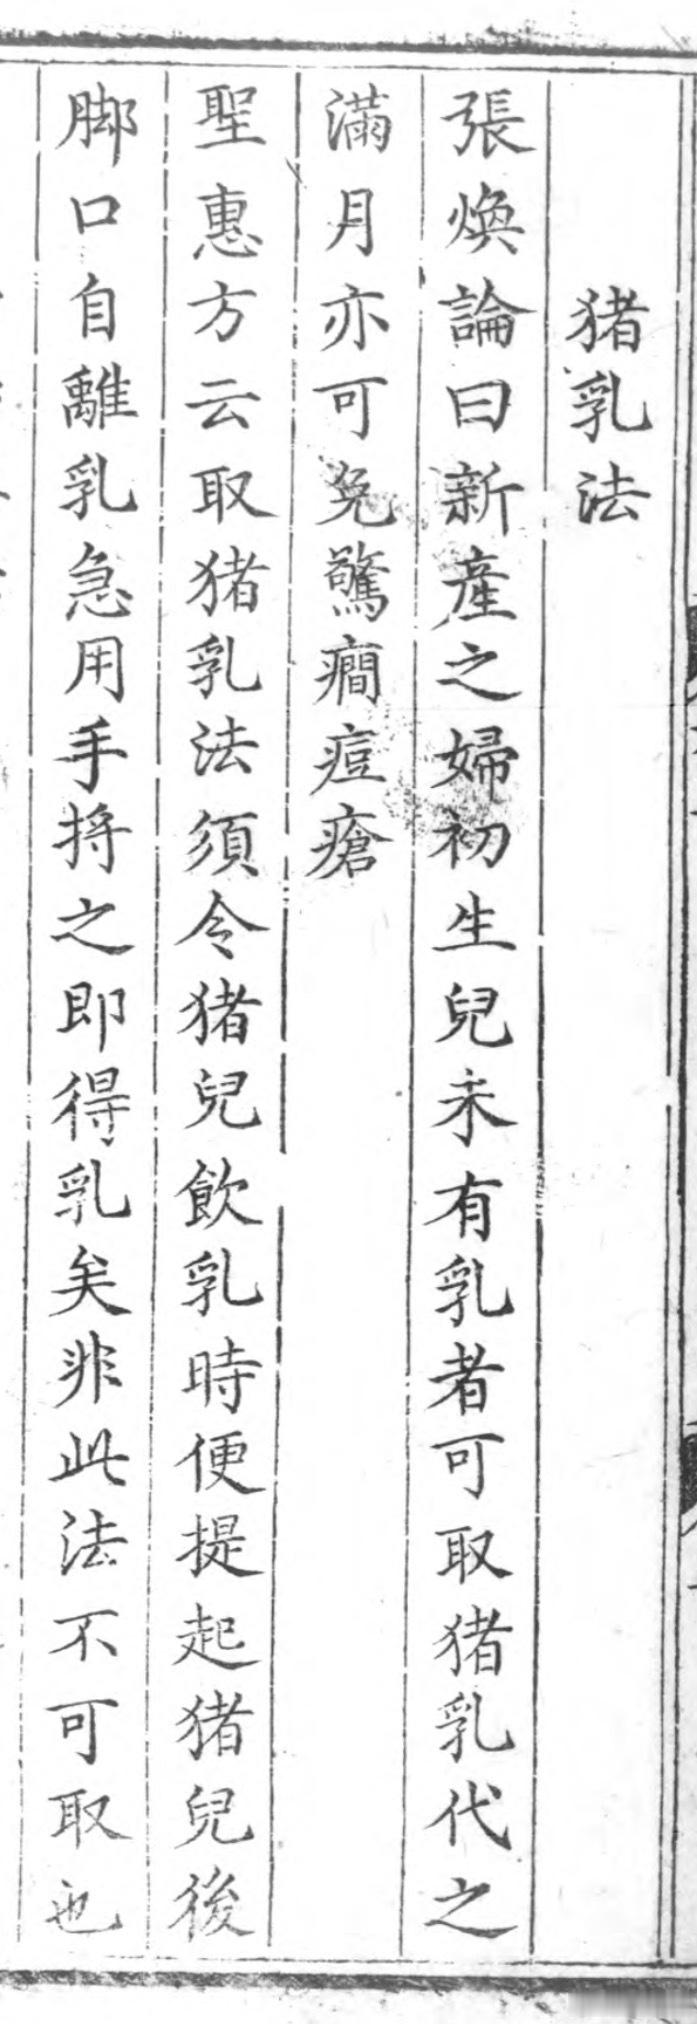 猪乳法
張煥論曰新產之婦初生兒未有乳者可取猪乳代之
滿月亦可免驚癇痘瘡
聖惠方云取猪乳法須令猪兒飲乳時便提起猪兒後
脚口自離乳急用手捋之即得乳矣非此法不可取也